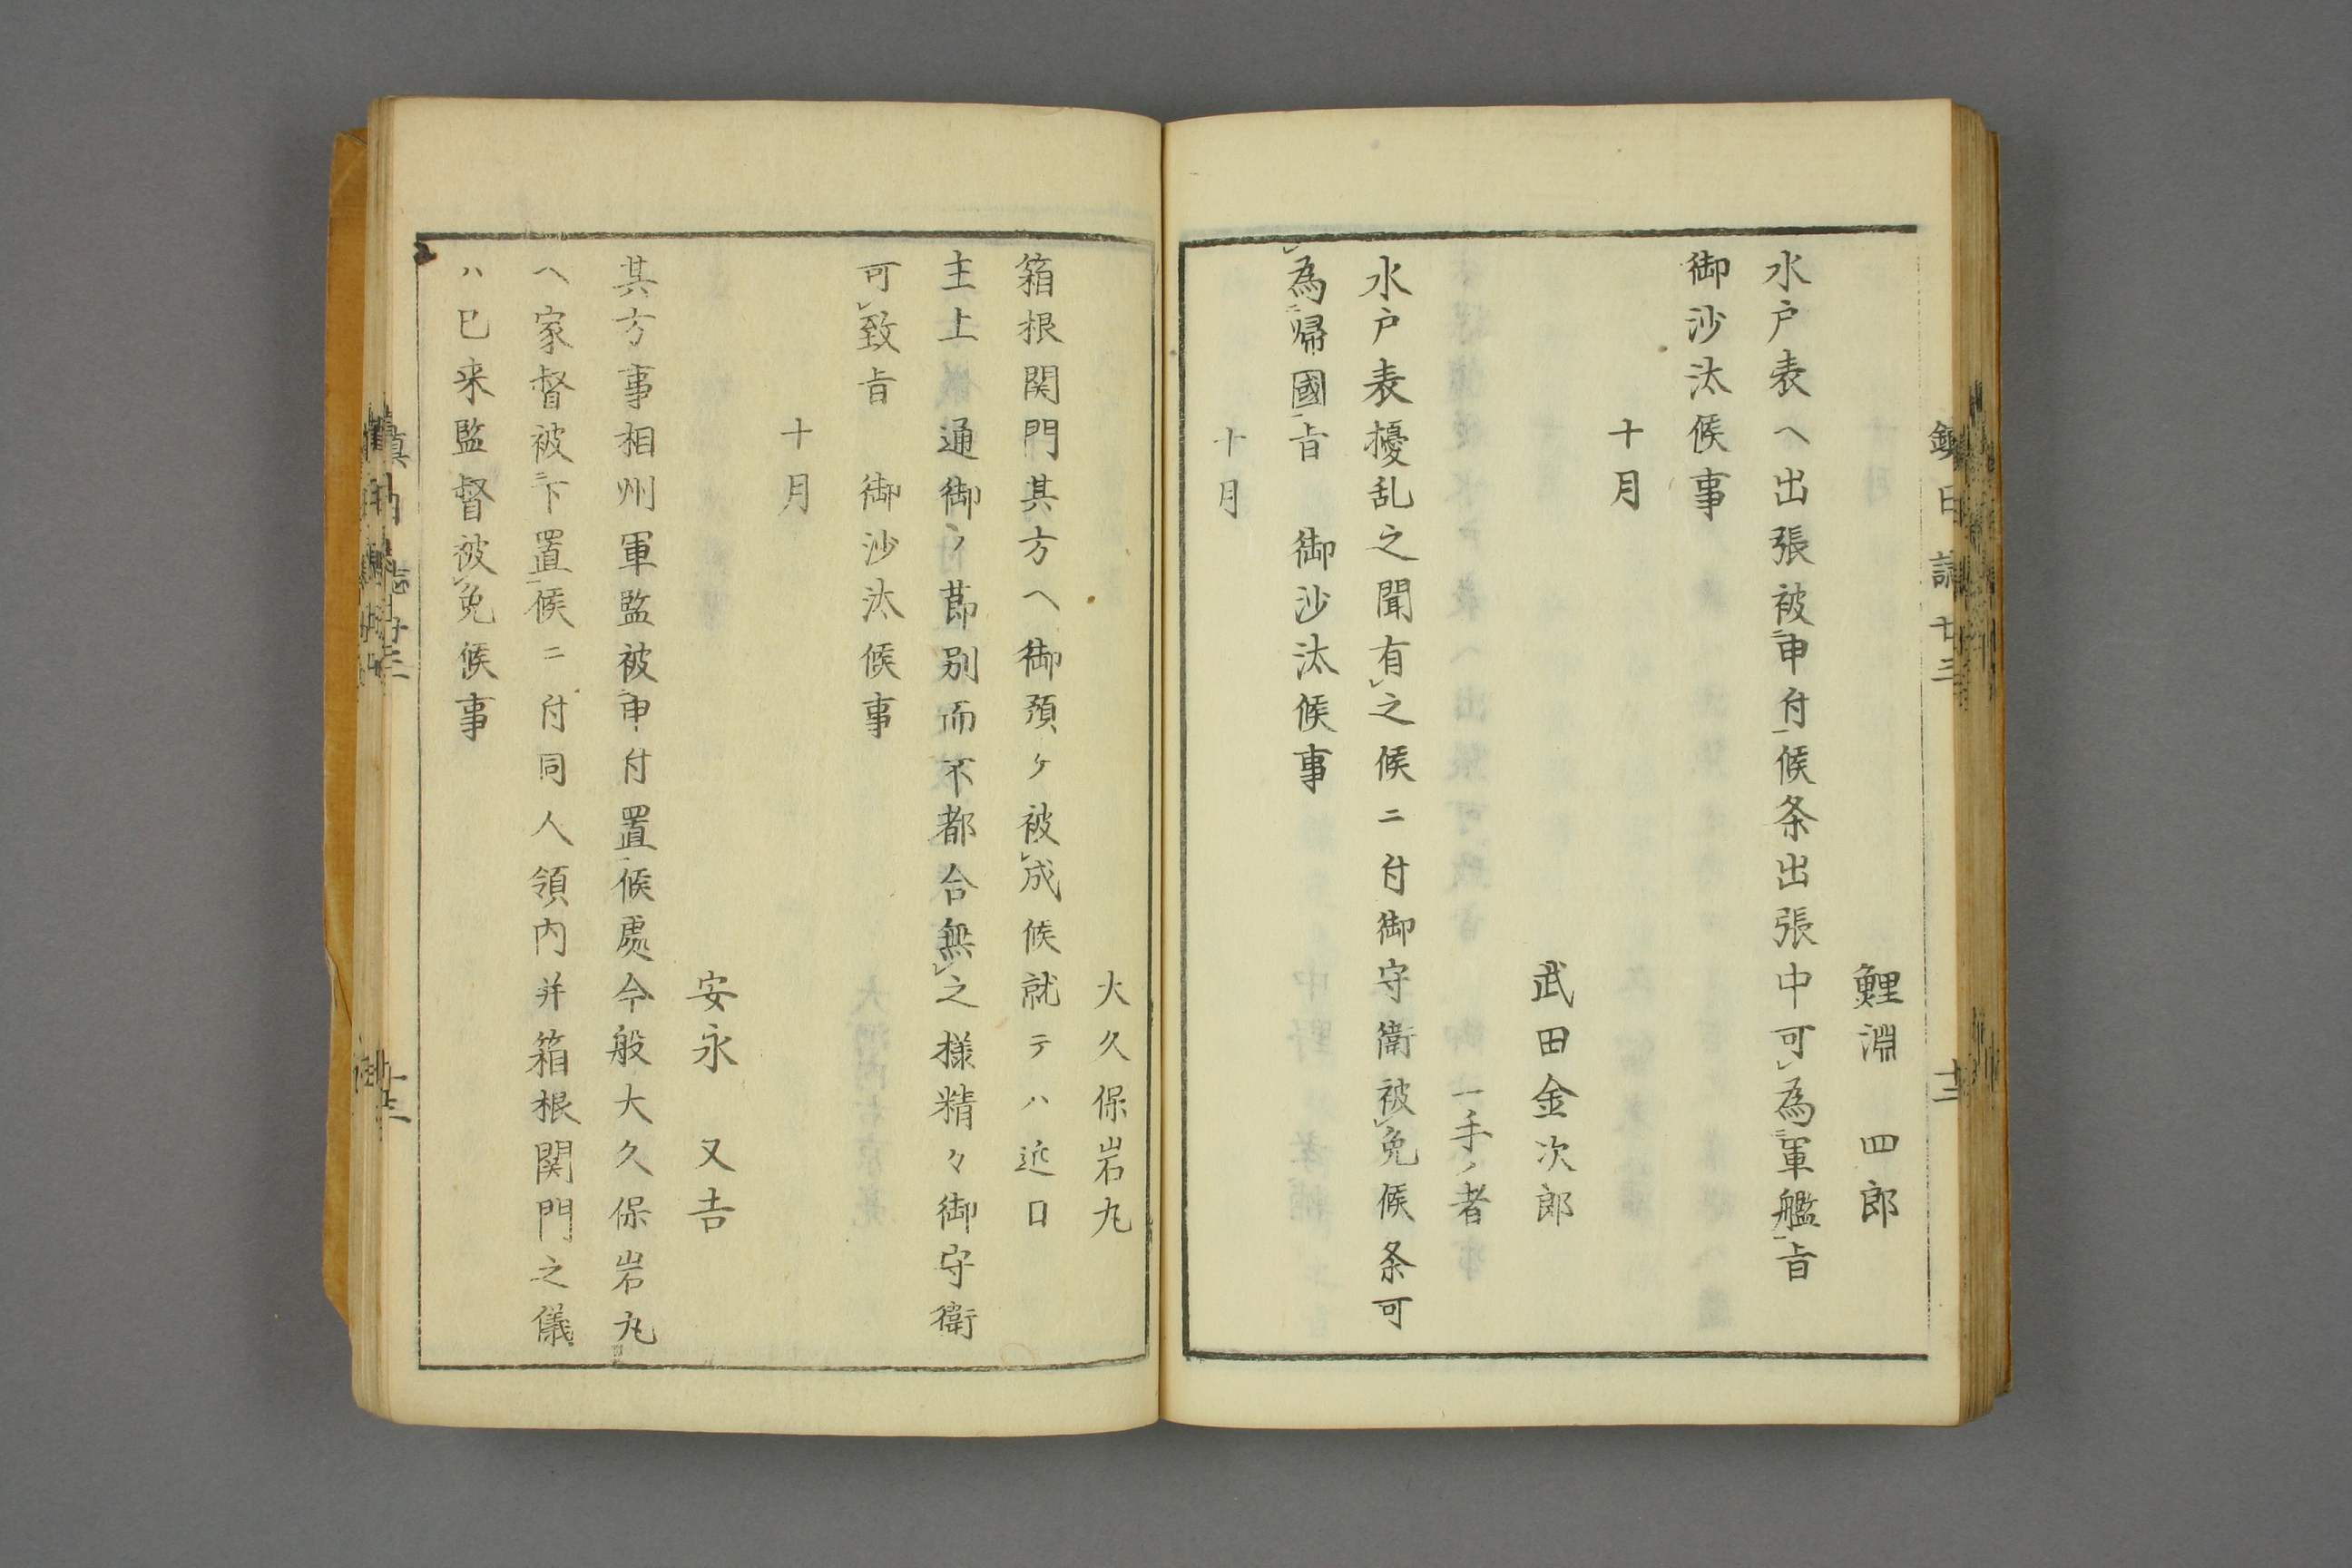 鯉淵　四郎
水戸表ヘ出張被㆓申付㆒候条出張中可㆑為㆓軍艦㆒旨
御沙汰候事
十月
武田金次郎
一手ノ者
水戸表擾乱之聞有㆑之候ニ付御守衛被㆑免候条可
㆑為㆓帰國㆒旨　御沙汰候事
十月
大久保岩丸
箱根関門其方ヘ御預ケ被㆑成候就テハ近日
主上　通御ノ莭別而不都合無㆑之様精々御守衛
可㆑致旨　御沙汰候事
十月
安永　又吉
其方事相州軍監被㆓申付置㆒候處今般大久保岩丸
ヘ家督被㆓下置㆒候ニ付同人領内并箱根関門之儀
ハ已来監督被㆑免候事